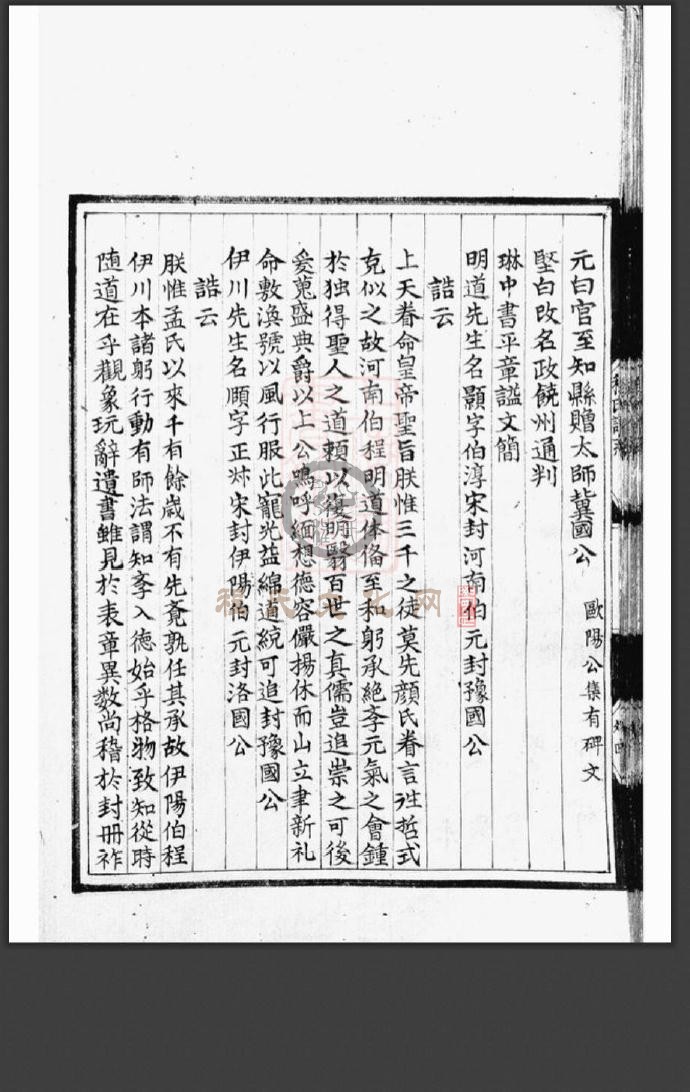 元白官至知縣贈太師冀國公 歐陽公集有碑文
堅白改名政饒州通判
琳中書平章謚文簡
明道先生名顥字伯淳宋封河南伯元封豫國公
誥云
上天眷命皇帝聖旨朕惟三千之徒莫先顔氏眷言往哲式
克似之故河南伯程明道体俻至和躬承絶李元氣之會鍾
於独得聖人之道頼以復明翳百世之真儒豈追崇之可後
爰蒐盛典爵以上公嗚呼緬想德容儼揚休而山立聿新礼
命敷渙號以風行服此寵光益綿道統可追封豫國公
伊川先生名頤字正叔宋封伊陽伯元封洛國公
誥云
朕惟孟氏以來千有餘歲不有先竟孰任其承故伊陽伯程
伊川本諸躬行動有師法謂知李入德始乎格物致知從時
随道在乎觀象玩辭遺書雖見於表章異数尚稽於封冊祚
程氏文化网